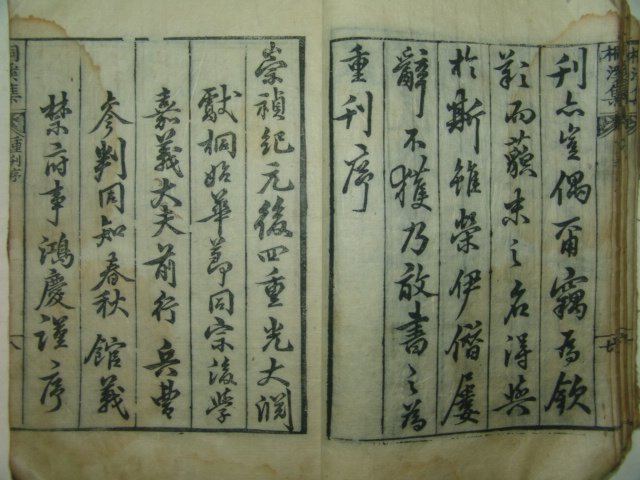 桐溪集
刊亦豈偶爾竊爲欽
歎而藐末之名得與
於斯雖榮伊僭屢
辭不獲乃敢書之爲
重刊序
崇禎紀元後四重光大淵
獻桐始華節同宗後學
嘉義大夫前行兵曹
參判同知春秋館義
禁府事鴻慶謹序
桐溪集 重刊序 八